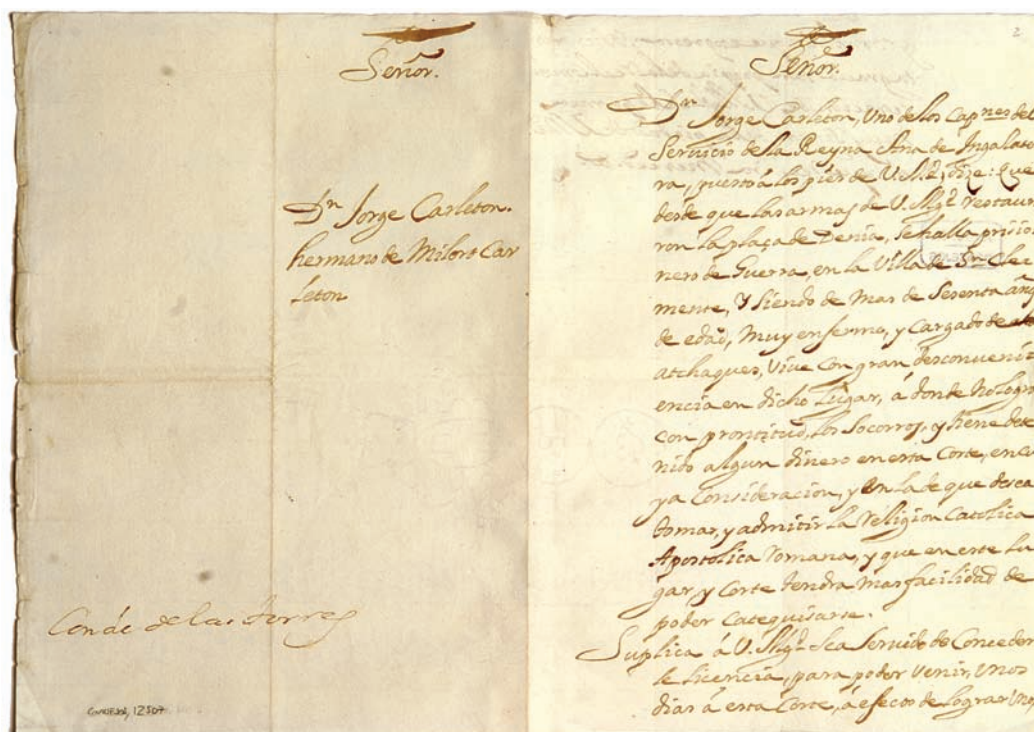 Señor.
Dn Jorge Carleton.
hermano de Milord Car
leton
Conde de las Torres
CONSEJOS, 12507
2
Señor.
Dn Jorge Carleton, Uno de los Capnes del
Servicio de la Reyna Ana de Ingalater
ra, puesto á los piés de V. Mgd, dize: Que
desde que las armas de V. Mgd restaura
ron la plaça de Denia, se halla prisio
nero de Guerra, en la Villa de Sn Cle
mente, Y siendo de mas de Sesenta años
de edad, Muy enfermo, y Cargado de
atchaques, Vive Con gran desconveni
encia en dicho Lugar, á donde No logra
con prontitud, los Socorros, y tiene dete
nido algun dinero en esta Corte, en cu
ya Consideracion, y en la de que desea
tomar, y admitir la Religion Catolica
Apostolica Romana, y que en este Lu
gar, y Corte tendra mas facilidad de
poder Catequisarse.
Suplica á V. Mgd Sea Servido de Conceder
le licencia, para poder Venir, Unos
dias á esta Corte, á efecto de lograr Uno,